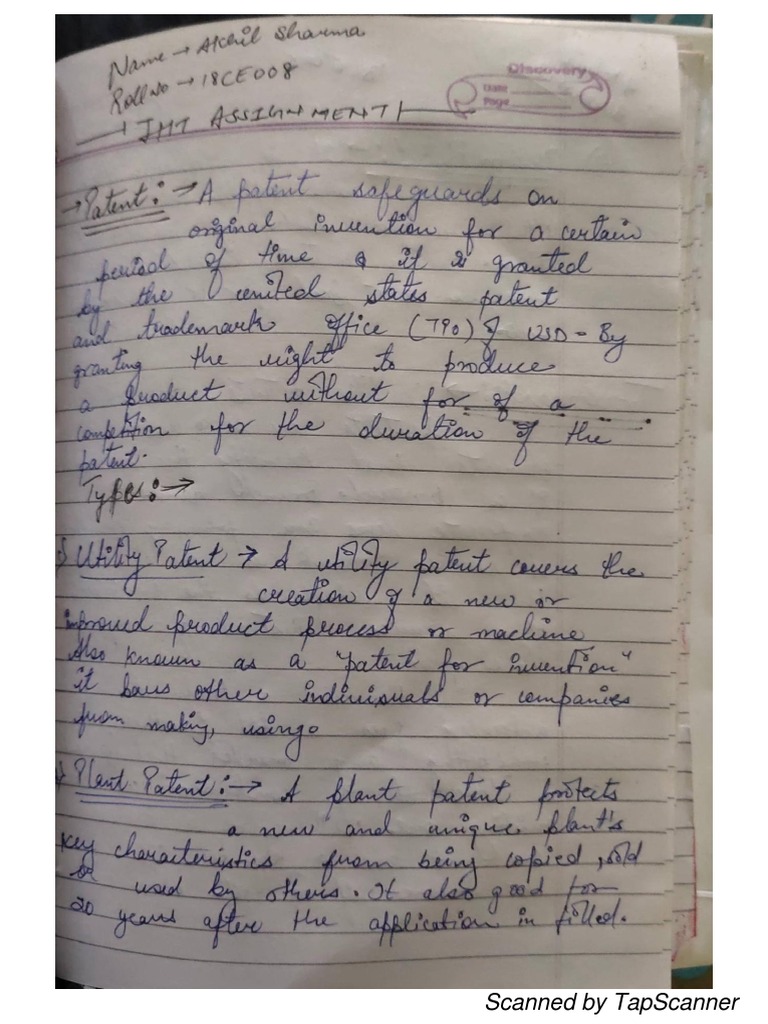 Name → Akhil Sharma
Roll No → 18CE008
Discovery
Date
Page
→ IMT ASSIGNMENT 1
→ Patent: → A patent safeguards on
original invention for a certain
period of time & it is granted
by the united states patent
and trademark office (TPO) of USD - By
granting the right to produce
a product without for of a
competition for the duration of the
patent.
Types: →
Utility Patent → A utility patent covers the
creation of a new or
improved product process or machine
Also known as a "patent for invention"
it bars other individuals or companies
from making, using.
Plant Patent: → A plant patent protects
a new and unique plant's
key characteristics from being copied, sold
or used by others. It also good for
20 years after the application in filled.
Scanned by TapScanner